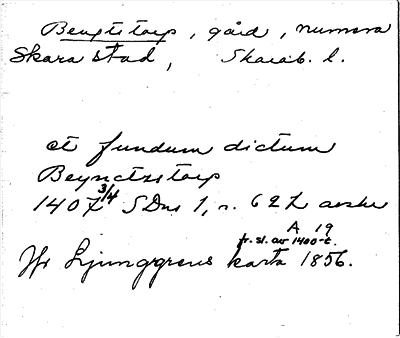 Bengtstorp, gård, numera
Skara stad, Skarab. l.
et fundum dictum
Beynctzstorp
1407 3/4 SDns 1, n. 62 avskr
A 19
fr. sl. av 1400-t.
Jfr Ljunggrens karta 1856.